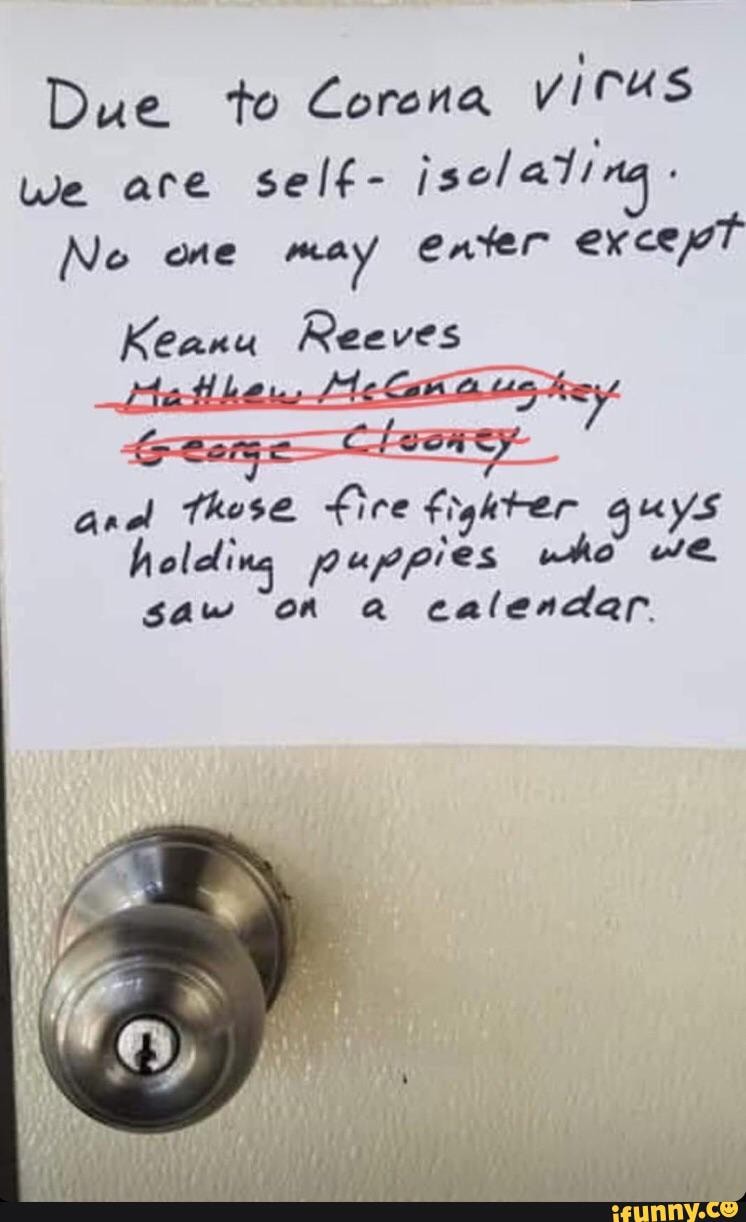 Due to Corona virus
we are self-isolating.
No one may enter except
Keanu Reeves
Matthew McConaughey
George Clooney
and those firefighter guys
holding puppies who we
saw on a calendar.
ifunny.co